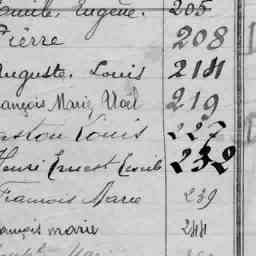 Emile, Eugène. 205
Pierre 208
Auguste, Louis 214
François Marie Noël 219
Gaston Louis 227
Henri Ernest 232
François Marie 239
François marie 244